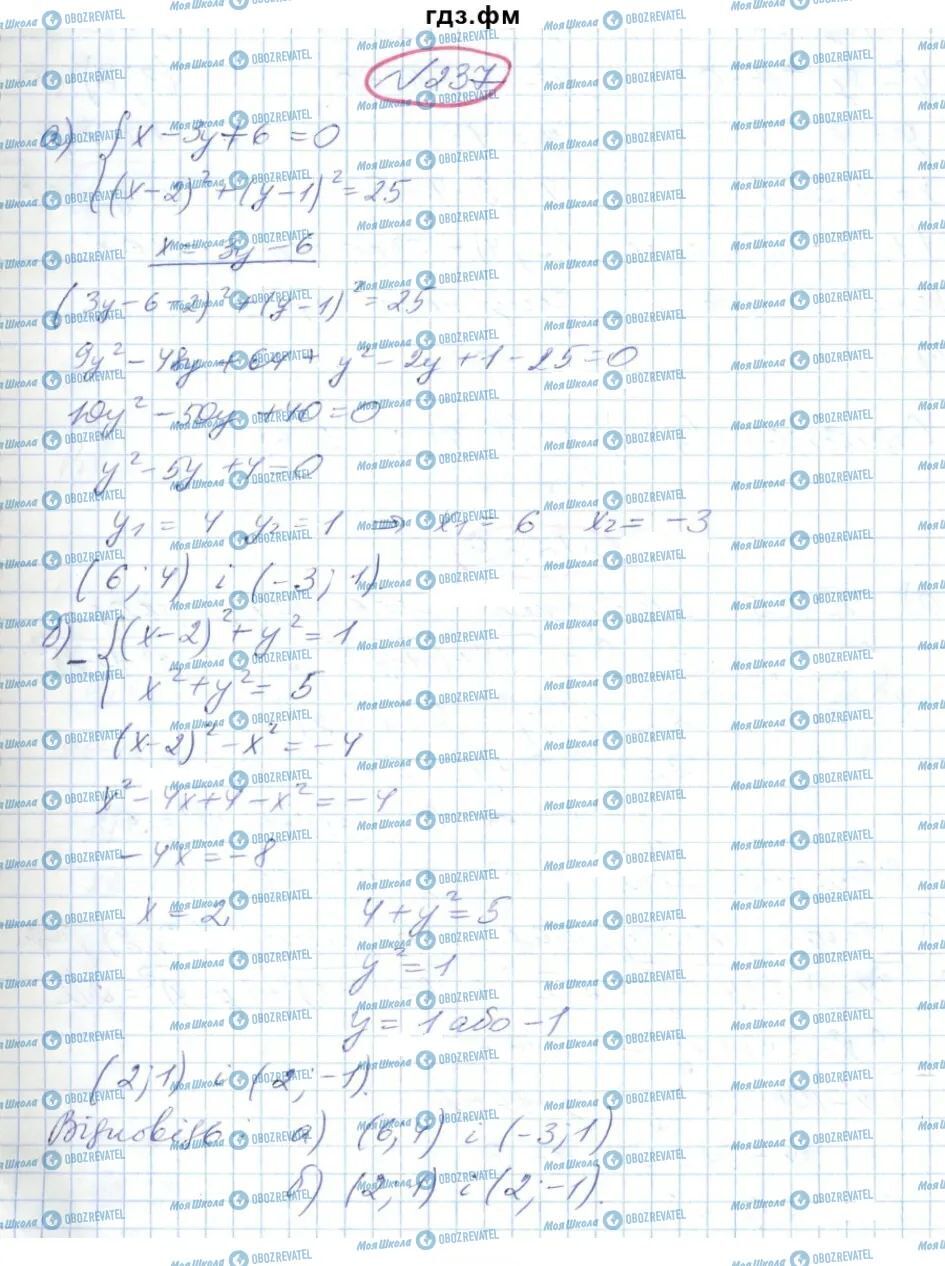 гдз.фм
№237
а) { x - 3y + 6 = 0
{ (x-2)² + (y-1)² = 25
x = 3y - 6
(3y - 6 - 2)² + (y-1)² = 25
9y² - 48y + 64 + y² - 2y + 1 - 25 = 0
10y² - 50y + 40 = 0
y² - 5y + 4 = 0
y₁ = 4 y₂ = 1 ⇒ x₁ = 6 x₂ = -3
(6; 4) і (-3; 1)
б) - { (x-2)² + y² = 1
{ x² + y² = 5
(x-2)² - x² = -4
x² - 4x + 4 - x² = -4
-4x = -8
x = 2, 4 + y² = 5
y² = 1
y = 1 або -1
(2; 1) і (2; -1).
Відповідь: а) (6; 4) і (-3; 1)
б) (2; 1) і (2; -1).
Моя Школа OBOZREVATEL